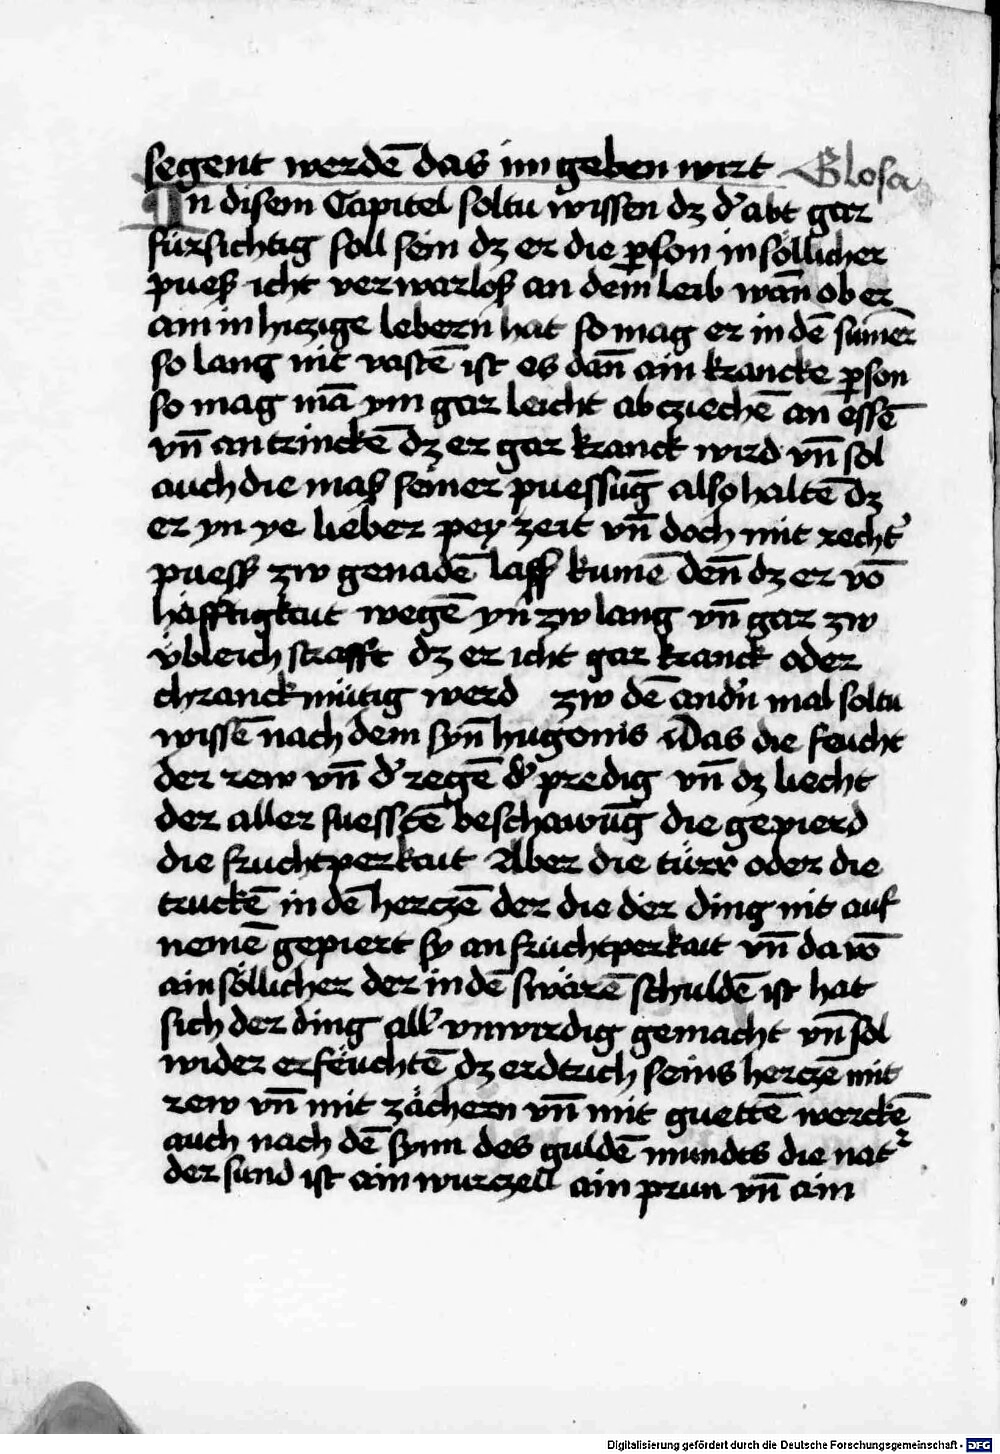 segent werdē das im geben wirt Glosa
In disem Capitel soltu wissen dz d' abt gar
fürsichtig soll sein dz er die p̱son in söllicher
puesß icht verwarloß an dem leib wān ob er
ain in hiczige lebern hat so mag er in dē sumer
so lang nit vastē ist es dan̄ ain krancke p̱son
so mag mā ym gar leicht abcziechē an essē
vn̄ an trinckē dz er gar kranck wird vn̄ sol
auch die maß seiner puessūg also haltē dz
er yn ye lieber pey zeit vn̄ doch mit recht'
puess zw genadē lass kumē den̄ dz er vō
häfftigkait wegē yn zw lang vn̄ gar zw
übleich strafft dz er icht gar kranck oder
chranckmütig werd zw dē and'n mal soltu
wissē nach dem syn̄ hugonis Das die feucht
der rew vn̄ d' regē d' predig vn̄ dz liecht
der aller suesstē beschawūg die gepierd
die fruchtperkait Aber die türr oder die
truckē in dē herczē der die der ding nit auf
nemē gepiert sy an fruchtperkait vn̄ da vō
ain söllicher der in dē swärē schuldē ist hat
sich der ding all' vnwirdig gemacht vn̄ sol
wider erfeuchtē dz erdtrich seins herczē mit
rew vn̄ mit zächern vn̄ mit guettē werckē
auch nach dē synn des guldē mundes die nat'
der sund ist ain wurczell ain prun vn̄ ain
Digitalisierung gefördert durch die Deutsche Forschungsgemeinschaft - DFG